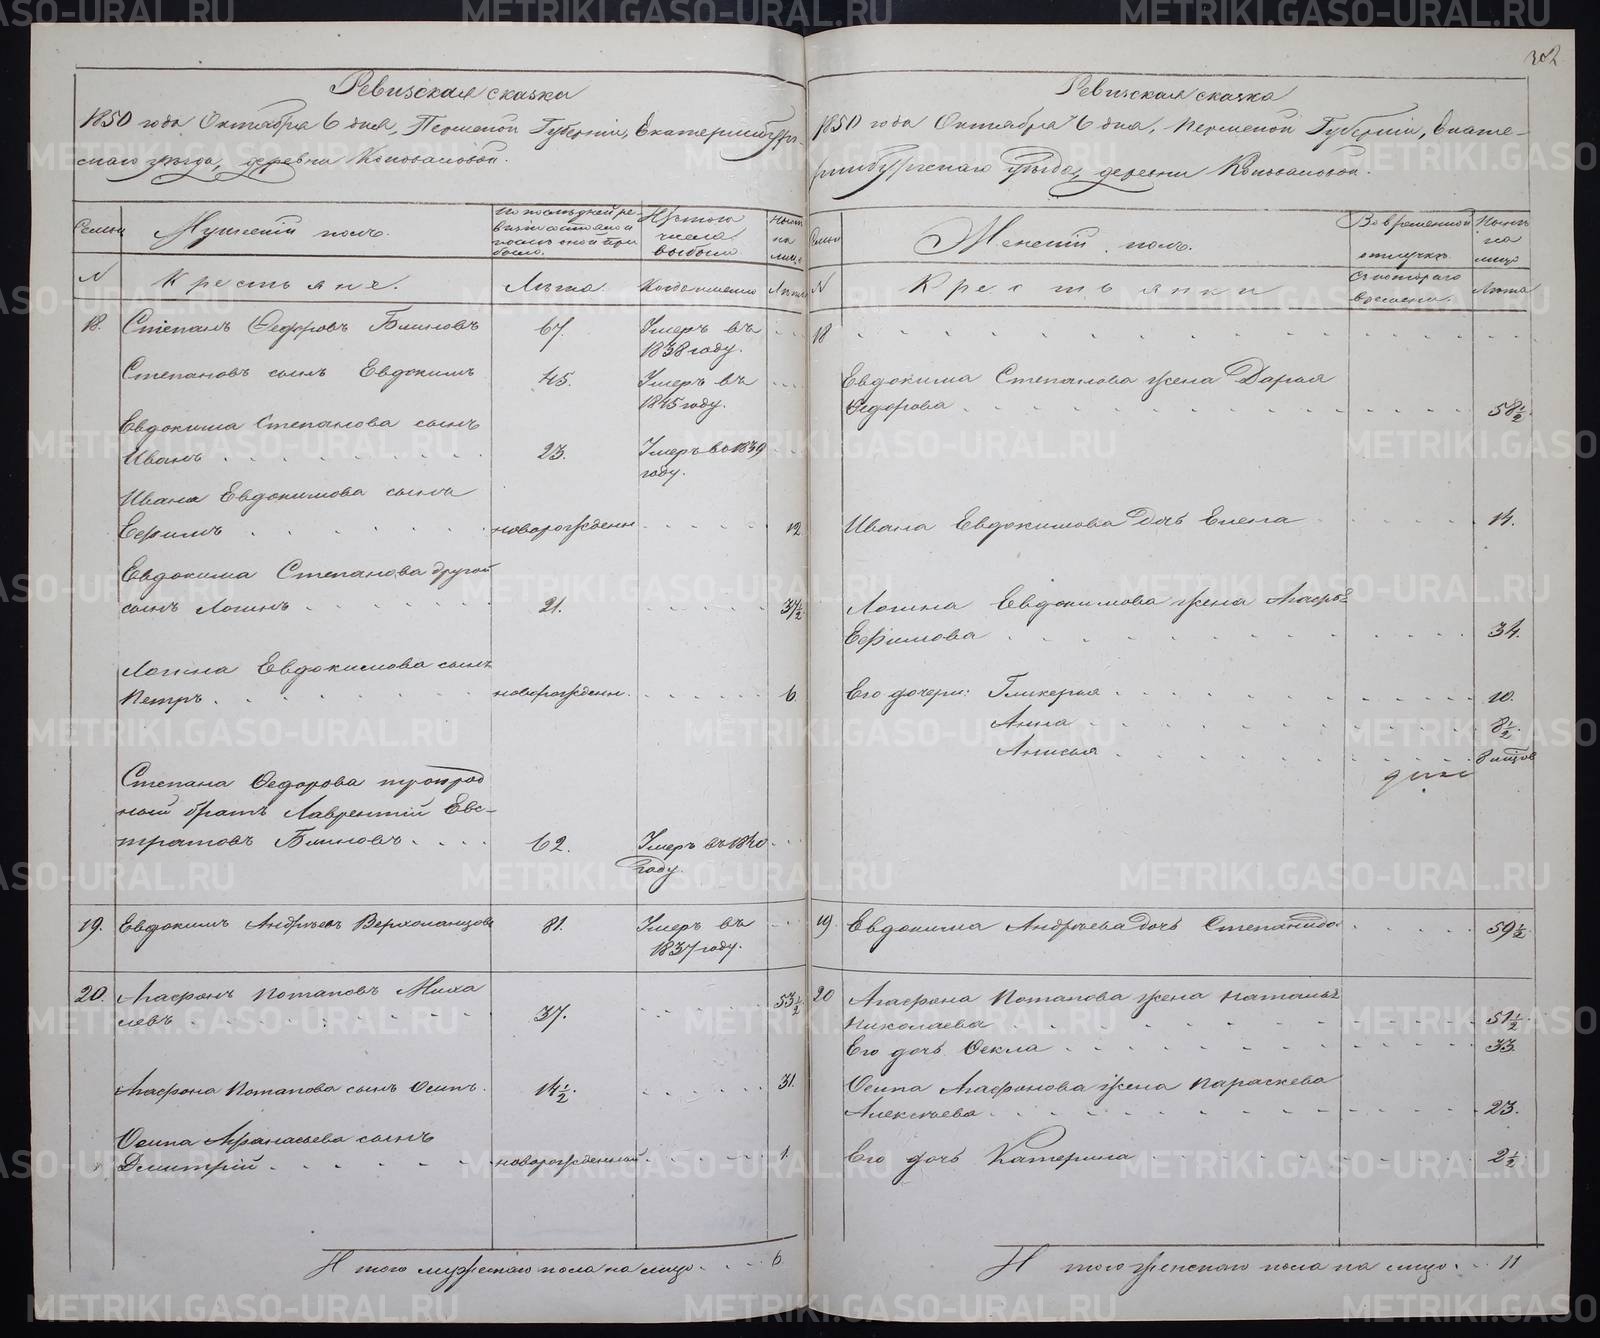 302
Ревизская сказка
1850 года Октября 6 дня, Пермской Губерніи, Екатеринбург-
скаго уѣзда, деревни Коноваловой.
Семьи
Мужескій полъ.
По послѣдней ре-
визіи состояло и
послѣ оной при
было.
Изъ того
числа
выбыло
Нынѣ
на
лицо
№
Крестьяне.
Лѣта.
Когда именно
Лѣта
18. Степанъ Ѳедоровъ Блиновъ 67. Умеръ въ
1838 году.
Степановъ сынъ Евдокимъ 45. Умеръ въ
1845 году.
Евдокима Степанова сынъ
Иванъ 23. Умеръ въ 1839
году.
Ивана Евдокимова сынъ
Ефимъ новорожденн 12
Евдокима Степанова другой
сынъ Логинъ 21. 37½
Логина Евдокимова сынъ
Петръ новорожденн. 6.
Степана Ѳедорова троюрод
ный братъ Лаврентій Евс-
тратовъ Блиновъ 62. Умеръ въ 1840
году.
19. Евдокимъ Андрѣевъ Верхоланцовъ 81. Умеръ въ
1837 году.
20. Агафонъ Потаповъ Миха
левъ 37. 53½
Агафона Потапова сынъ Осипъ. 14½. 31.
Осипа Афанасьева сынъ
Дмитрій новорожденной 1
Итого мужескаго пола на лицо 6
Ревизская сказка
1850 года Октября 6 дня, Пермской Губерніи, Екате-
ринбургскаго Уѣзда, деревни Коноваловой.
Семьи
Женскій полъ.
Во временной
отлучкѣ
Нынѣ
на
лицо
№
Крестьянки
Съ котораго
времени.
Лѣта
18
Евдокима Степанова жена Дарья
Ѳедорова 58½
Ивана Евдокимова Дочь Елена 14.
Логина Евдокимова жена Агафья
Ефимова 34.
Его дочери: Гликерья 10.
Анна 8½.
Анисья
19 Евдокима Андрѣева дочь Степанида 59½
20 Агафона Потапова жена Наталья
Николаева 51½
Его дочь Ѳекла 33
Осипа Агафонова жена Параскева
Алексѣева 23.
Его дочь Катерина 2½
Итого женскаго пола на лицо 11
METRIKI.GASO-URAL.RU